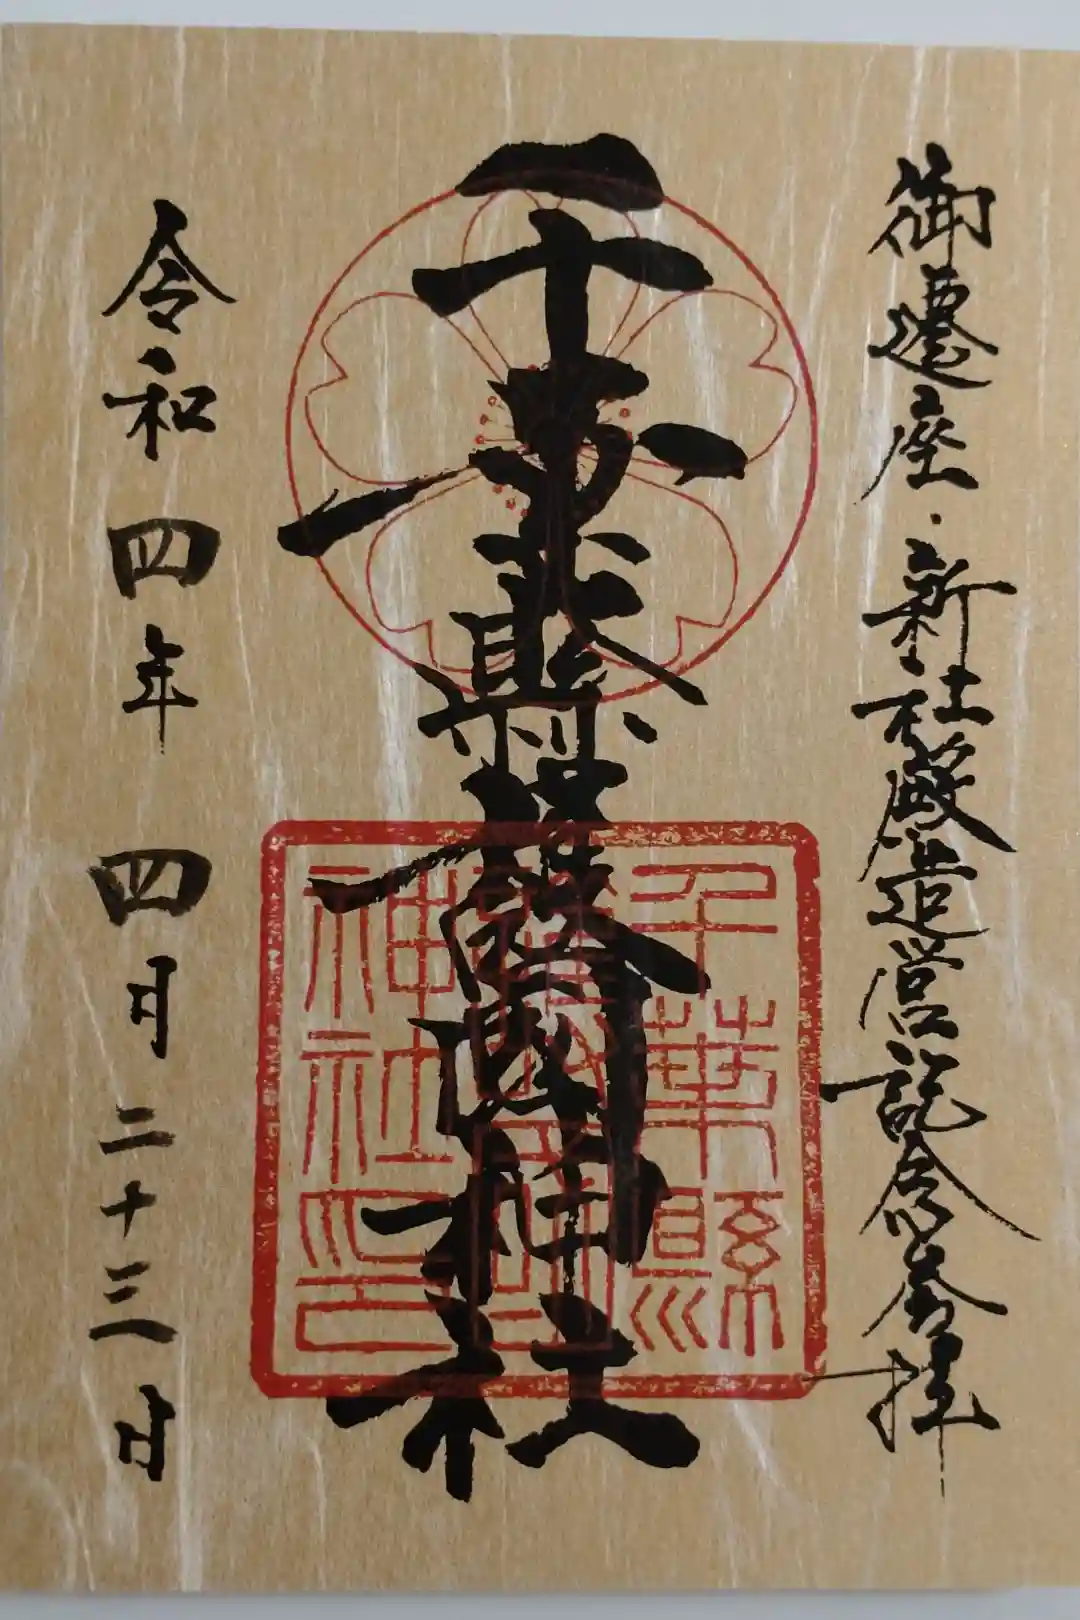 御遷座・新社殿造営記念参拝
千葉縣護國神社
千葉縣
護國
神社印
令和四年四月二十三日